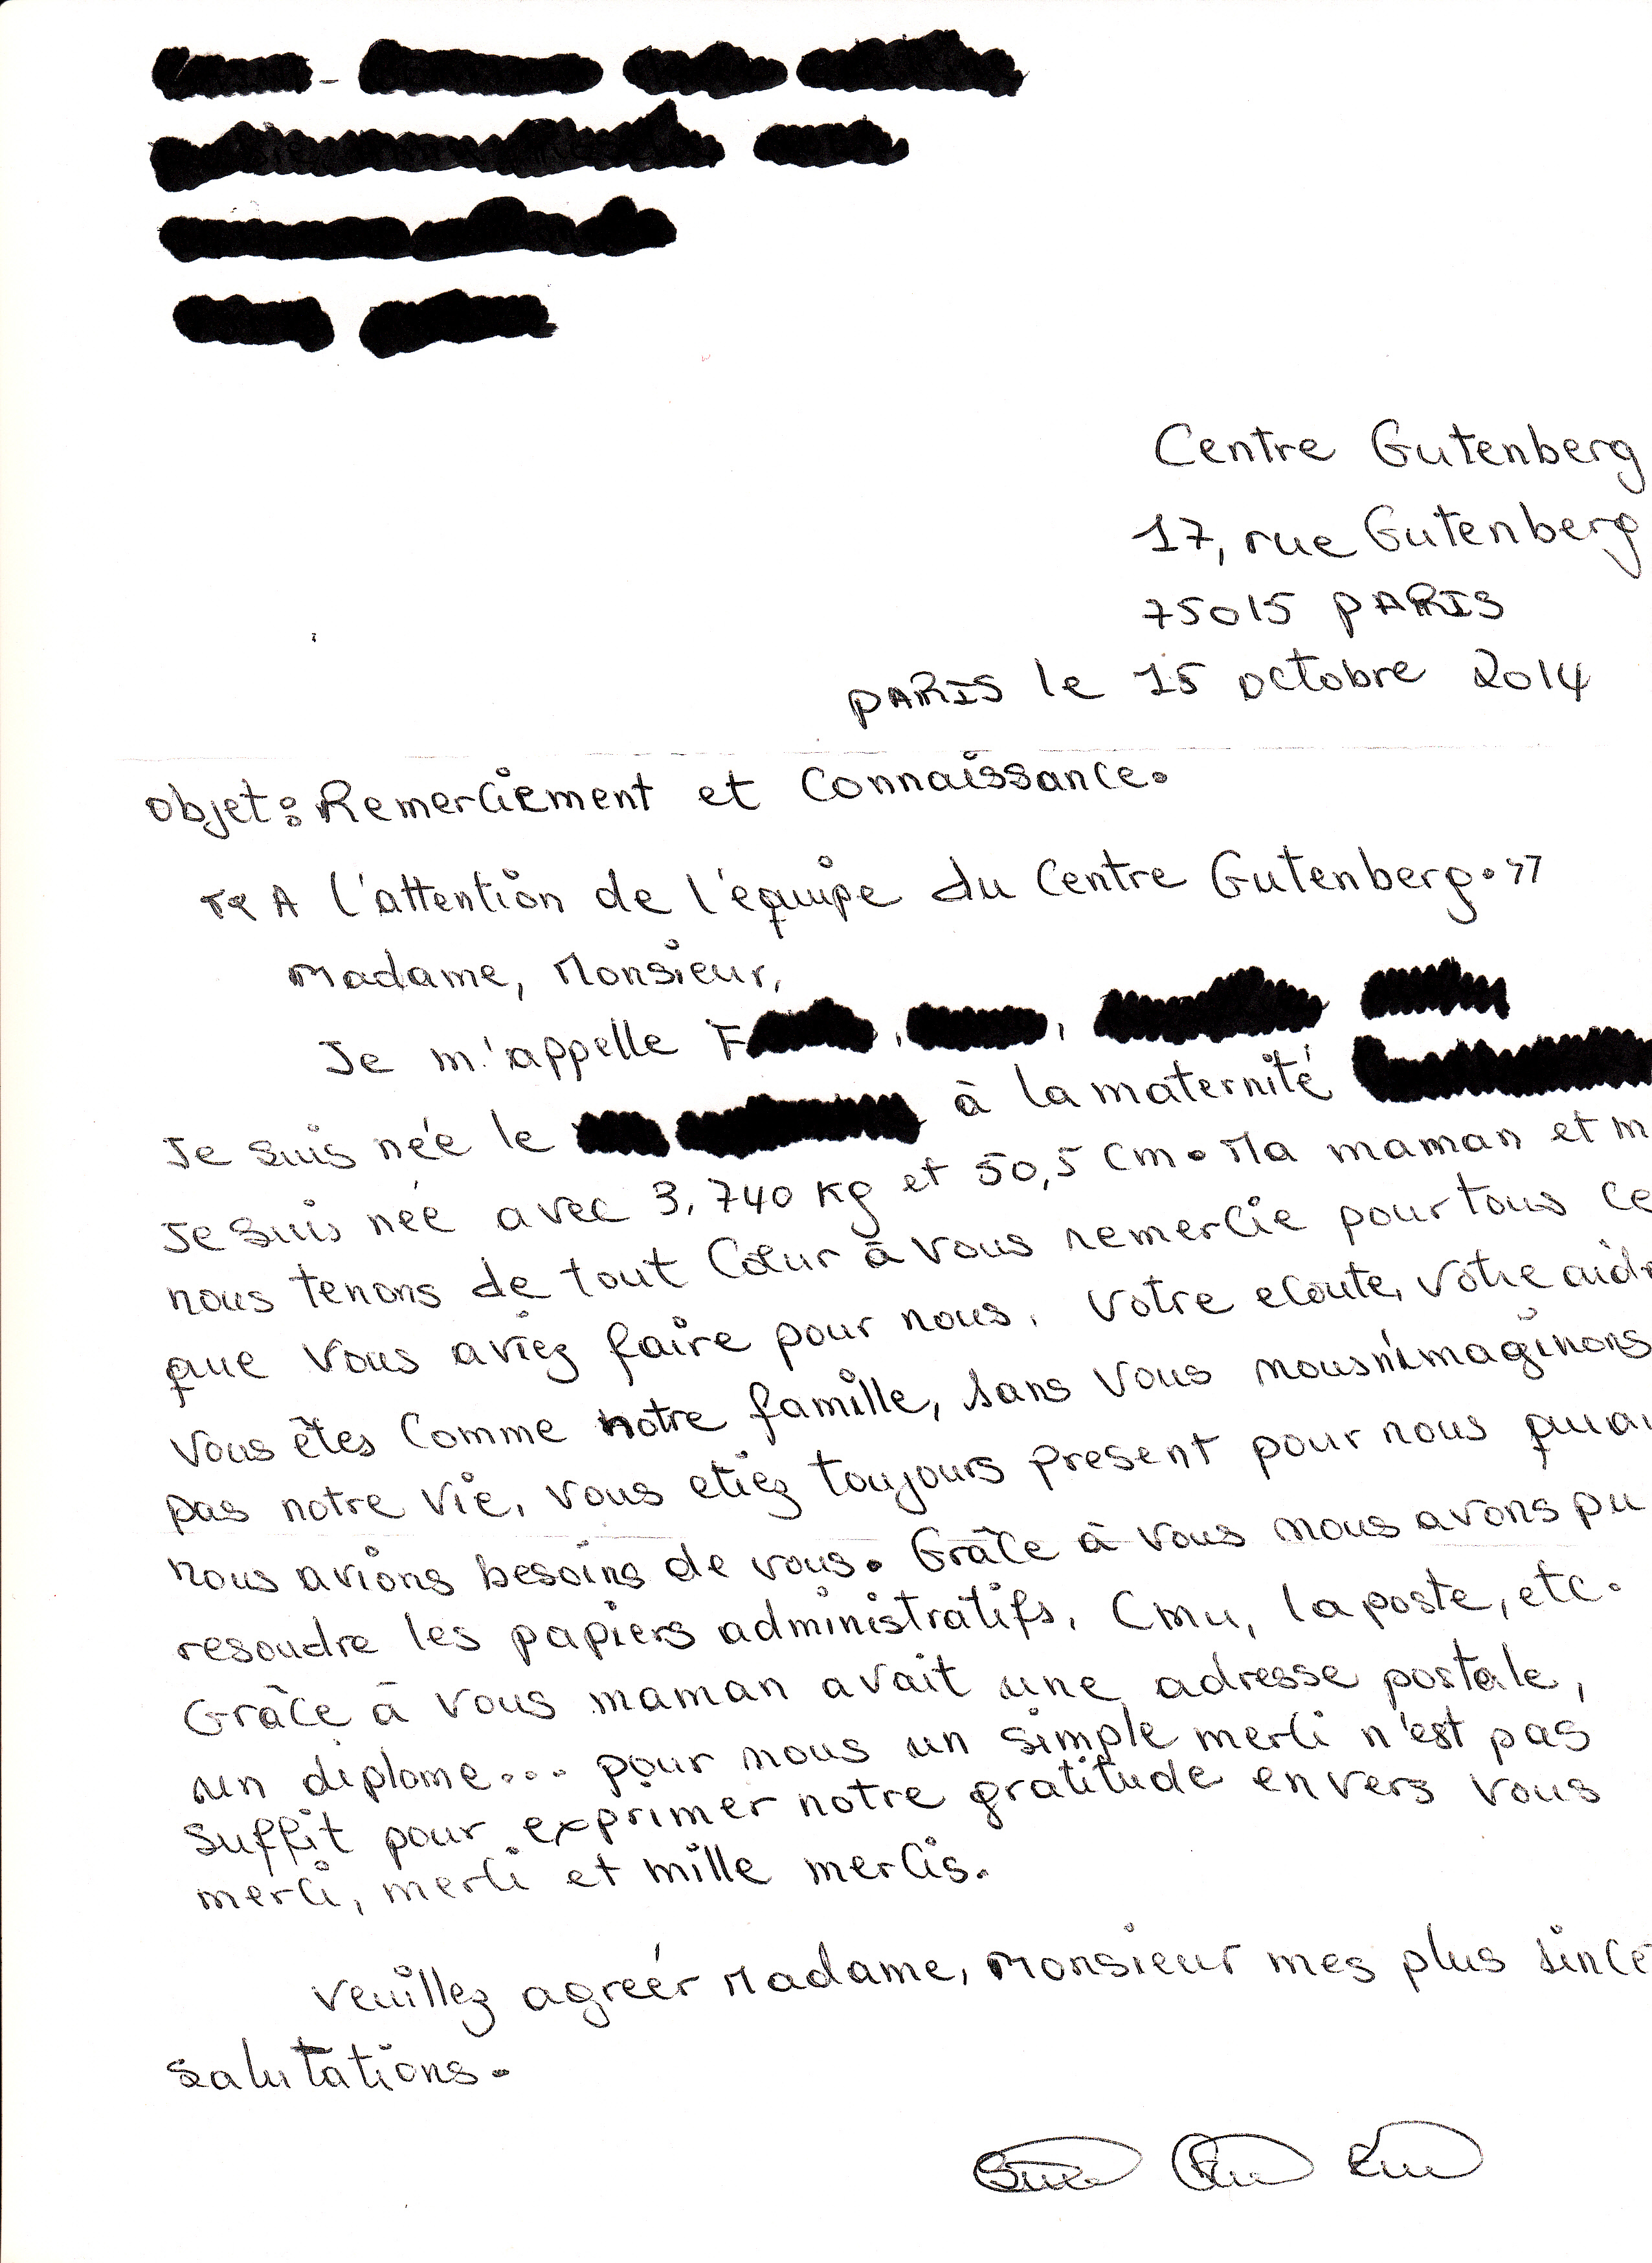 Centre Gutenberg
17, rue Gutenberg
75015 PARIS
PARIS le 15 octobre 2014
Objet: Remerciement et Connaissance.
"A l'attention de l'équipe du Centre Gutenberg."
Madame, Monsieur,
Je m'appelle F
Je suis née le à la maternité
Je suis née avec 3,740 kg et 50,5 cm. Ma maman et m
nous tenons de tout Cœur à vous remercie pour tous ce
que vous aviez faire pour nous. Votre ecoute, votre aide
vous êtes comme notre famille, sans vous nous n'imaginons
pas notre vie, vous etiez toujours present pour nous
nous avions besoins de vous. Grâce à vous nous avons pu
resoudre les papiers administratifs, Cmu, la poste, etc.
Grâce à vous maman avait une adresse postale,
un diplome... pour nous un simple merci n'est pas
suffit pour exprimer notre gratitude envers vous
merci, merci et mille mercis.
Veuillez agréer Madame, Monsieur mes plus since
salutations.